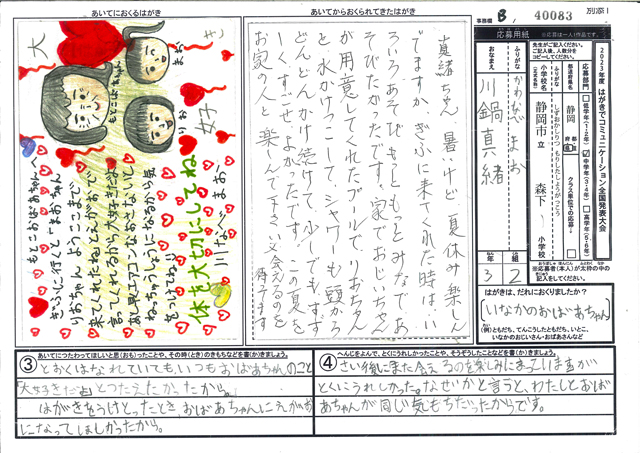 あいてにおくるはがき
あいてからおくられてきたはがき
事務局 B / 40083
別添1
大好き
まお
もとこおばあちゃん
りお
体を大切にしてね
川なべ まお
もとこおばあちゃんへ
ぎふに行くと「まおちゃん
りおちゃんようこそまで
来てくれたね」とえがおで
言ってくれるから大好きだよ
ねっちゅうしょうになるから気
をつけてね
真緒ちゃん 暑けど 夏休み楽しん
でますか。ぎふに来てくれた時はい
ろいろあそびもともともとみなであ
そびたかったです。家でおじいちゃん
が用意してくれたプールでりおちゃん
と水かけっこしてシャワーも頭から
どんどんかけ続けて少しもまず
お家の人と楽しんで下さい又会えるのを
待てます
応募用紙
※応募は一人1作品です。
先生がご記入ください。
ご記入後、人数分を
コピーしてください。
2023年度 はがきでコミュニケーション全国発表大会
応募部門
低学年(1・2年)
中学年(3・4年)
高学年(5・6年)
都道府県名
静岡
クラス単位での応募
小学校名
(正式名称)
しずおかしりつ もりしたしょうがっこう
静岡市立 森下 小学校
ふりがな
かわなべ まお
おなまえ
川鍋真緒
3年
2組
※応募者(本人)が太枠の中の
記入をしてください。
はがきは、だれにおくりましたか?
(いなかのおばあちゃん)
(例)ともだち、てんこうしたともだち、いとこ、
いなかのおじいさん・おばあさんなど
③ あいてにつたわってほしいと思(おも)ったことや、その時(とき)のきもちなどを書(か)きましょう。
とおくはなれていても、いつもおばあちゃんのこと
「大好きだよ」とつたえたかったから。
はがきをうけとったとき、おばあちゃんにえがお
になってほしかったから。
④ へんじをよんで、とくにうれしかったことや、そうぞうしたことなどを書(か)きましょう。
さい後にまた会えるのを楽しみにまっていますが
とくにうれしかった。なぜいかと言うと、わたしとおば
あちゃんが同じ気もちだったからです。